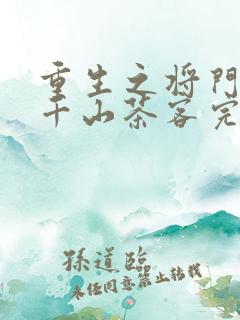 重生之将门
千山茶客完
孫道臨
未经同意禁止转载